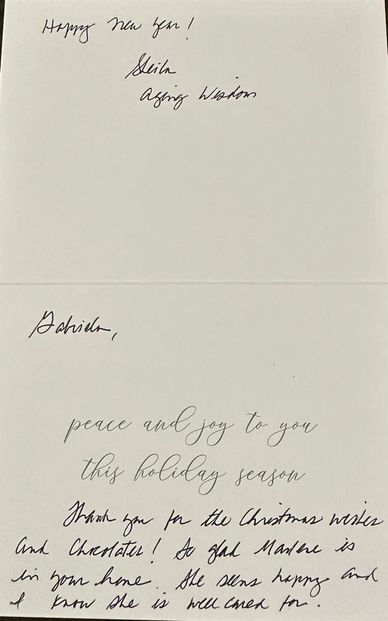 Happy New Year!
Sheila
Aging Wisdom
Gabriela,
peace and joy to you
this holiday season
Thank you for the Christmas wishes
and Chocolates! So glad Marlene is
in your home. She seems happy and
I know she is well cared for.